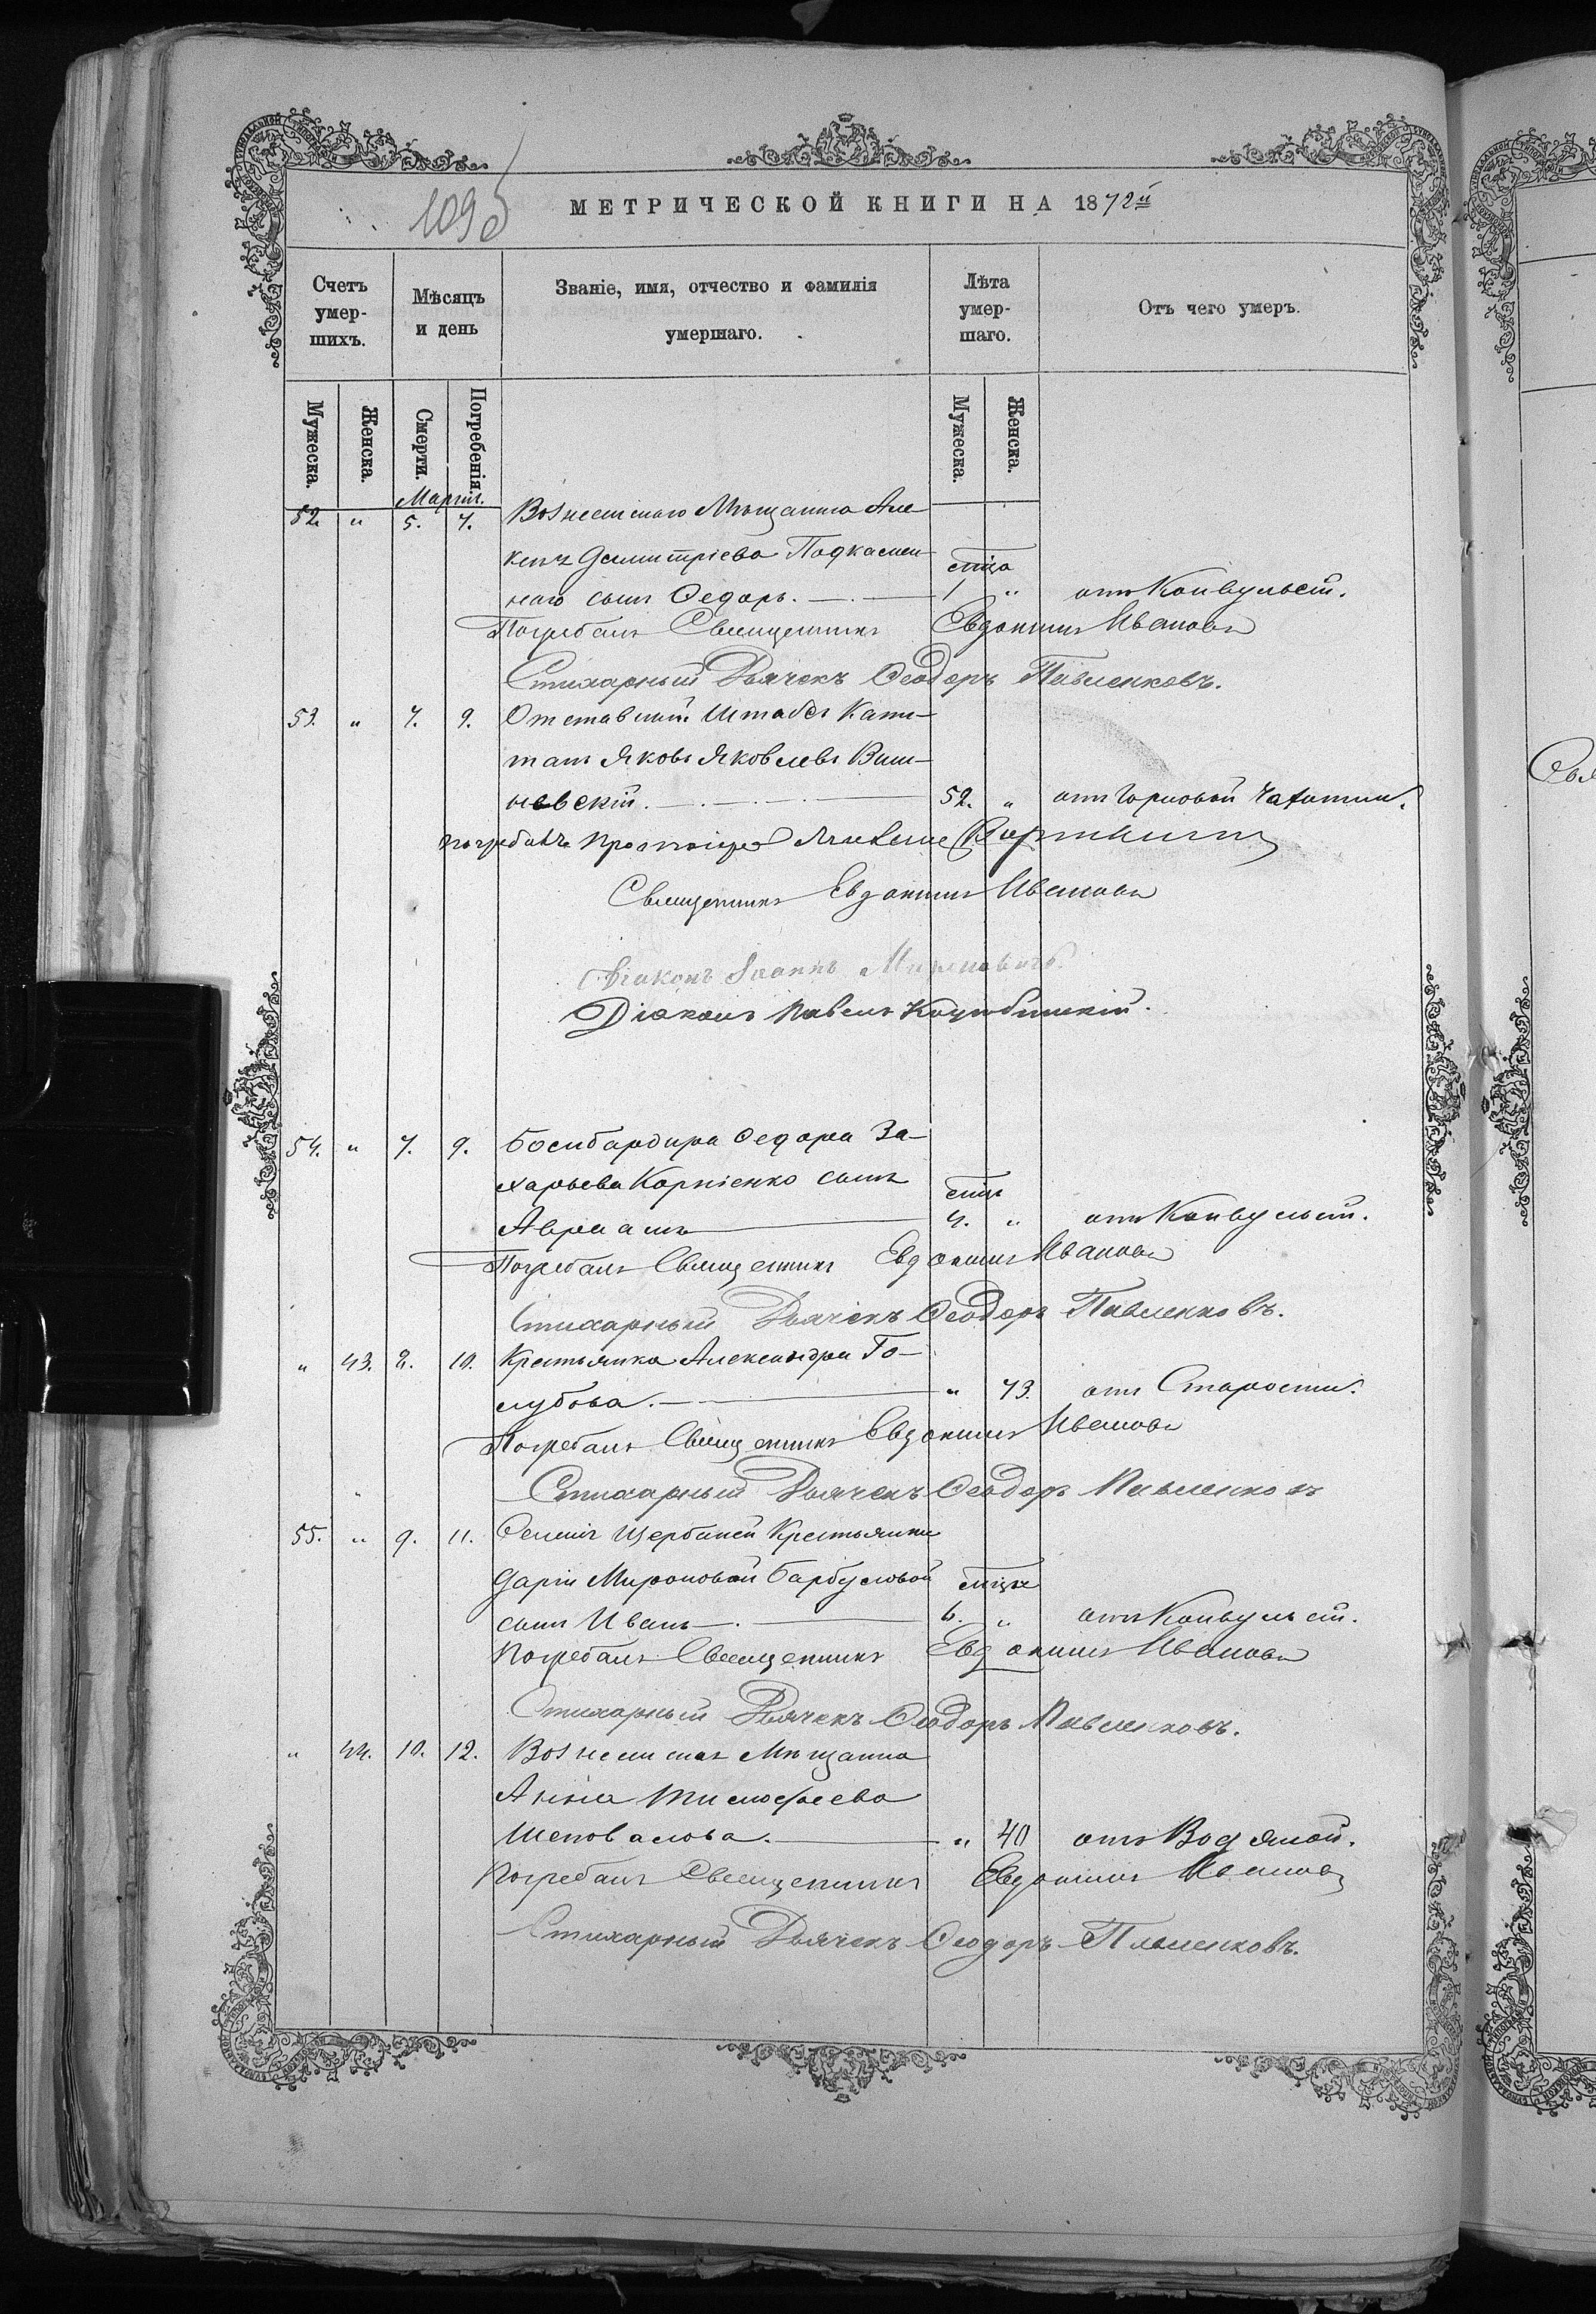 109б
МЕТРИЧЕСКОЙ КНИГИ НА 1872й
Счетъ умер-шихъ.
Мѣсяцъ и день
Званіе, имя, отчество и фамилія умершаго.
Лѣта умер-шаго.
Отъ чего умеръ.
Мужеска. Женска. Смерти. Погребенія. Мужеска. Женска.
Мартъ.
52. " 5. 7. Вознесенскаго Мѣщанина Але-
Димитріева
наго сынъ Ѳедоръ. 1 " отъ Конвульсій.
Погребалъ Священникъ Евдокимъ Ивановъ
Стихарный Дьячекъ Ѳеодоръ Павленковъ.
53. " 7. 9. Отставный Штабсъ Капи-
танъ Яковъ Яковлевъ Виш-
невскій. 52. " отъ Горловой Чахотки.
погребалъ Протоіерей
Священникъ Евдокимъ Ивановъ
Діаконъ Іоаннъ
Діаконъ Павелъ
54. " 7. 9. Бомбардира Ѳедора За-
харьева Корніенко сынъ
Авраамъ 4. " отъ Конвульсій.
Погребалъ Священникъ Евдокимъ Ивановъ
Стихарный Дьячекъ Ѳеодоръ Павленковъ.
" 43. 8. 10. Крестьянка Александра Го-
лубова. " 73. отъ Старости.
Погребалъ Священникъ Евдокимъ Ивановъ
Стихарный Дьячекъ Ѳеодоръ Павленковъ
55. " 9. 11. Щербаней Крестьянки
Даріи Мироновой Барбуловой мцъ
сынъ Иванъ. 6. " отъ Конвульсій.
Погребалъ Священникъ Евдокимъ Ивановъ
Стихарный Дьячекъ Ѳеодоръ Павленковъ.
" 44. 10. 12. Вознесенская Мѣщанка
Анна Тимофеева
Шеповалова. " 40 отъ Водяной.
Погребалъ Священникъ Евдокимъ Ивановъ
Стихарный Дьячекъ Ѳеодоръ Павленковъ.